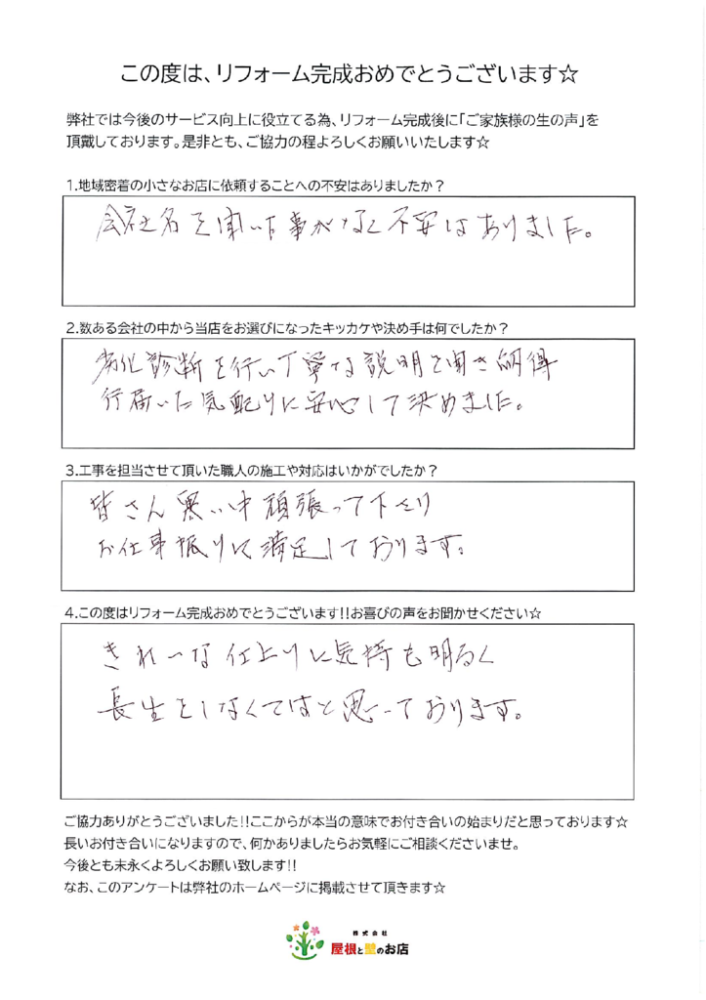 この度は、リフォーム完成おめでとうございます☆
弊社では今後のサービス向上に役立てる為、リフォーム完成後に「ご家族様の生の声」を
頂戴しております。是非とも、ご協力の程よろしくお願いいたします☆
1.地域密着の小さなお店に依頼することへの不安はありましたか？
会社名を聞いた事がなく不安はありました。
2.数ある会社の中から当店をお選びになったキッカケや決め手は何でしたか？
劣化診断を行い丁寧な説明を聞き納得
行届いた気配りに安心して決めました。
3.工事を担当させて頂いた職人の施工や対応はいかがでしたか？
皆さん寒い中頑張って下さり
お仕事振りに満足しております。
4.この度はリフォーム完成おめでとうございます!!お喜びの声をお聞かせください☆
きれいな仕上りに気持も明るく
長生をしなくてはと思っております。
ご協力ありがとうございました!!ここからが本当の意味でお付き合いの始まりだと思っております☆
長いお付き合いになりますので、何かありましたらお気軽にご相談くださいませ。
今後とも末永くよろしくお願い致します!!
なお、このアンケートは弊社のホームページに掲載させて頂きます☆
株式会社
屋根と壁のお店